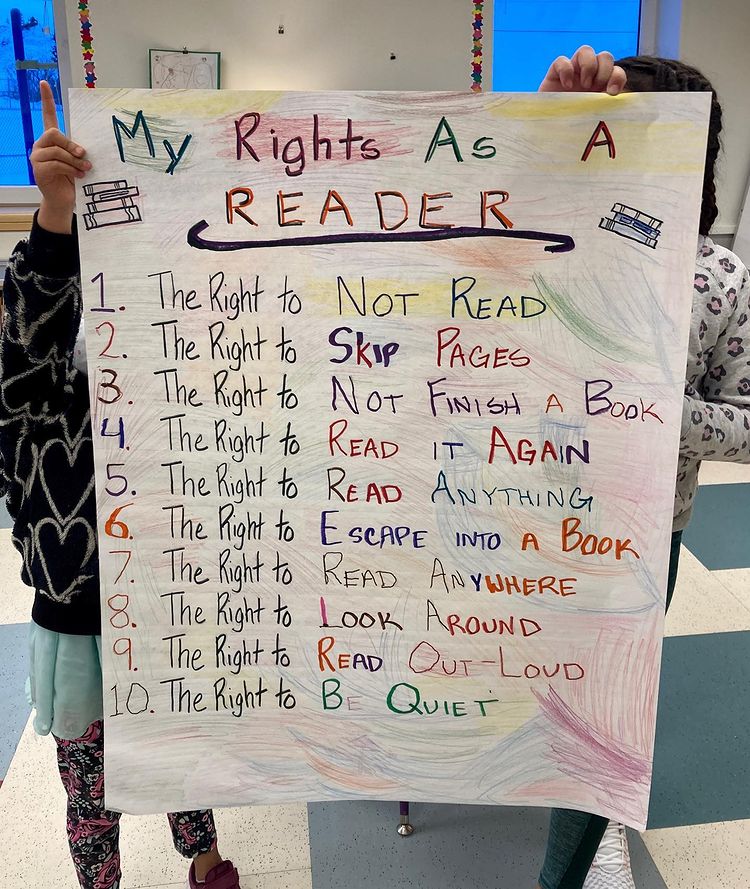 My Rights As A
READER
1. The Right to NOT READ
2. The Right to SKIP PAGES
3. The Right to NOT FINISH A BOOK
4. The Right to READ IT AGAIN
5. The Right to READ ANYTHING
6. The Right to ESCAPE INTO A BOOK
7. The Right to READ ANYWHERE
8. The Right to LOOK AROUND
9. The Right to READ OUT-LOUD
10. The Right to BE QUIET